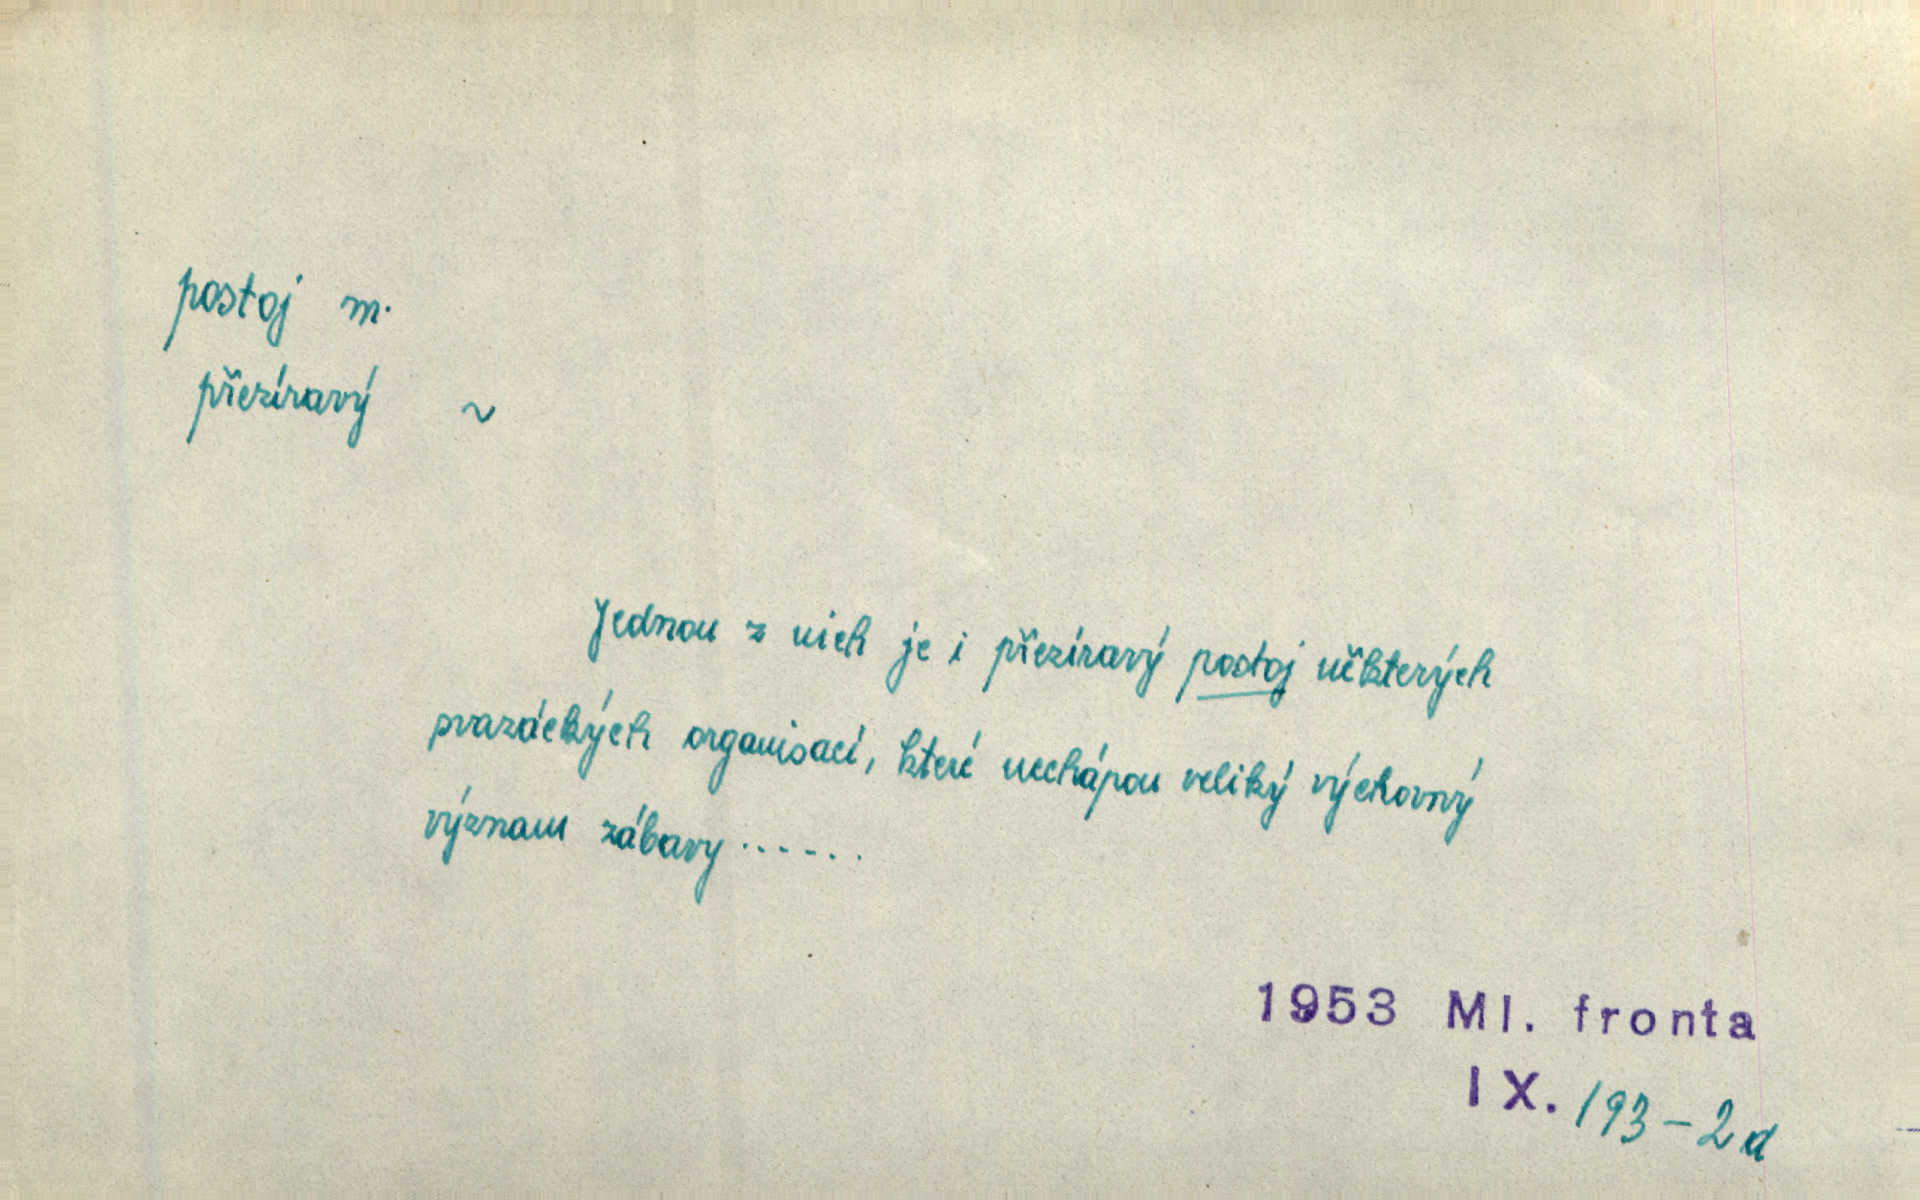 postoj m.
přezíravý ~
Jednou z nich je i přezíravý postoj některých
svazáckých organisací, které nechápou veliký výchovný
význam zábavy ......
1953 Ml. fronta
IX. 193-2d